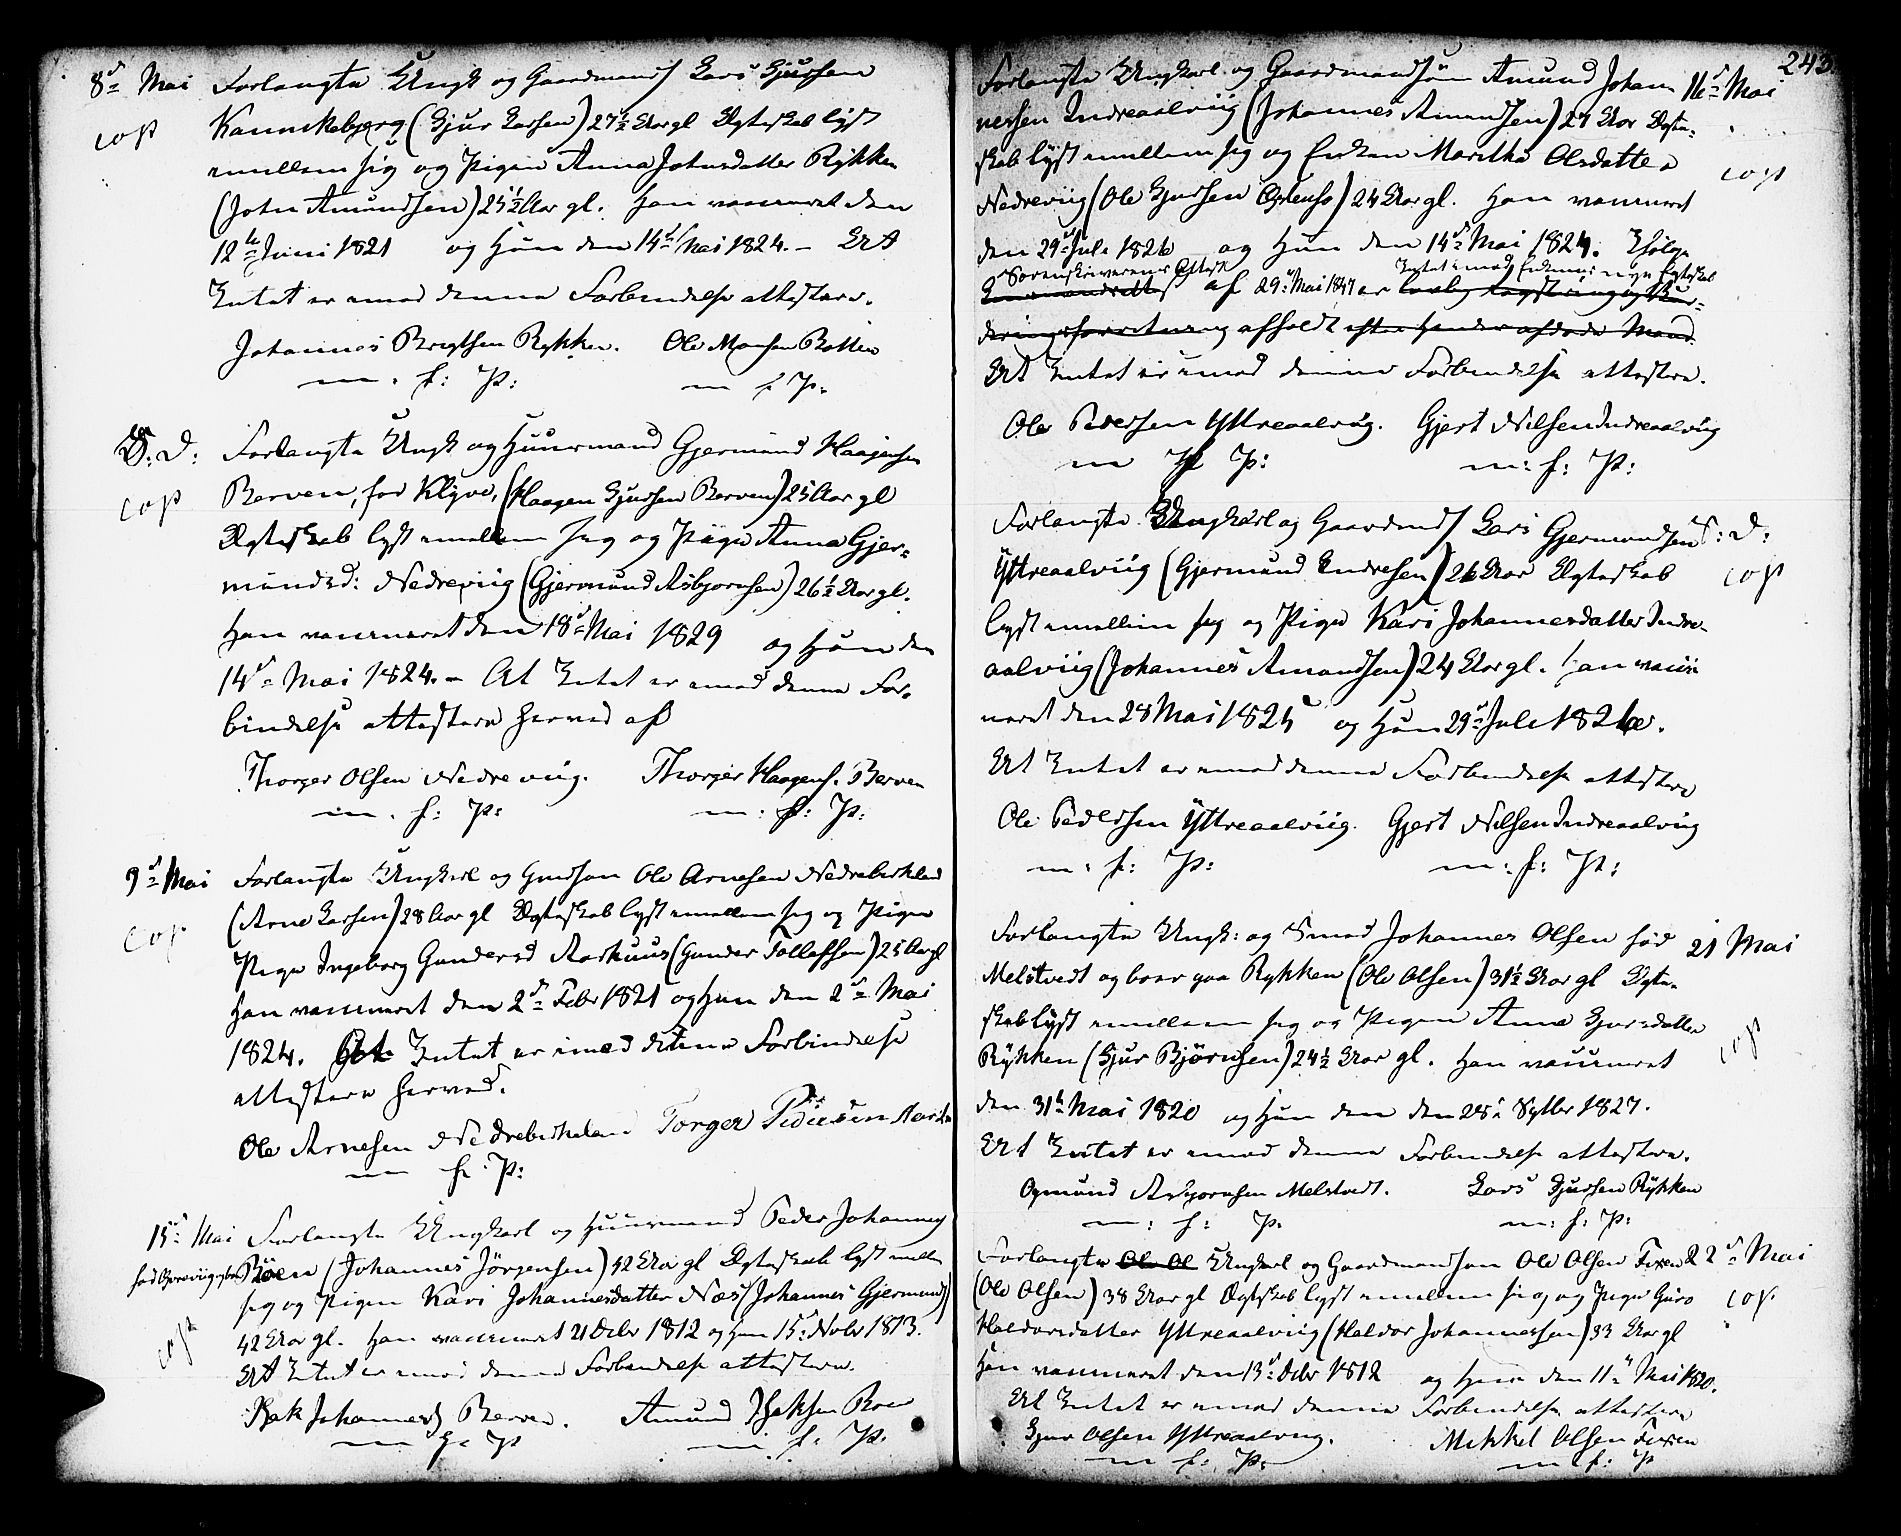 8de Mai Forlangte Ungk og Gaardmands Lars Sjursen
cop Kannikebjerg (Sjur Larsen) 27½ Aar gl Ægteskab lyst
mellem sig og Pigen Anna Johnsdatter Rykken
(John Amundsen) 25½ Aar gl. Han vaccineret den
12te Juni 1821 og Hun den 14de Mai 1824. - At
Intet er imod denne Forbindelse attestere.
Johannes Brigtsen Rykken. Ole Monsen Botten
m. f: P: m f P.
S. D: Forlangte Ungk og Huusmand Gjermund Haagensen
cop Berven, fød Klyve, (Haagen Sjursen Berven) 25 Aar gl
Ægteskab lyst mellem sig og Pigen Anna Gjer=
mundsd: Nedreviig (Gjermund Asbjornsen) 26½ Aar gl.
Han vaccineret den 18de Mai 1829 og Hun den
14de Mai 1824. - At Intet er imod denne For=
bindelse attestere herved af
Thorger Olsen Nedreviig. Thorger Haagens. Berven
m. f: P: m: f: P:
9de Mai Forlangte Ungkarl og Gmdsøn Ole Arnesen Nedrebirkeland
cop (Arne Larsen) 28 Aar gl Ægteskab lyst mellem sig og Pigen
Pigen Ingeborg Gundersd Aarhuus (Gunder Tollefsen) 25 Aar gl
Han vaccineret den 2de Febr 1821 og Hun den 2de Mai
1824. At Intet er imod denne Forbindelse
attestere herved.
Ole Arnesen Nedrebirkeland Torger Pedersen
m f: P:
15de Mai Forlangte Ungkarl og Huusmand Peder Johannes
Røen (Johannes Jörgensen) 42 Aar gl Ægteskab lyst mellem
sig og Pigen Kari Johannesdatter Næs (Johannes Gjermunds)
42 Aar gl. Han vaccineret 21 Octbr 1812 og Hun 15: Novbr 1813.
cop At Intet er imod denne Forbindelse attestere.
Isak Johannes Berven. Amund Isaksen Roen
m f: P m. f: P.
243.
Forlangte Ungkarl og Gaardmandssön Amund Johan 16de Mai
nessen Indreaalviig (Johannes Amundsen) 27 Aar Ægte=
skab lyst mellem sig og Enken Maritha Olsdatter cop
Nedreviig (Ole Sjursen Øystensø) 24 Aar gl. Han vaccineret
den 29de Juli 1826 og Hun den 14de Mai 1824. Ifølge
Sorenskriverens Attest Intet imod Enkens nye Egteskab
af 29: Mai 1847 er lovlig Registrering og Vur=
deringsforretning afholdt efter hendes afdøde Mand.
At Intet er imod denne Forbindelse attestere.
Ole Pedersen Yttreaalviig. Gjert Nilsen Indreaalviig
m f P: m: f: P:
Forlangte Ungkarl og Gaardmds Lars Gjermundsen S: D:
Yttreaalviig (Gjermund Endresen) 26 Aar Ægteskab cop
lyst mellem sig og Pigen Kari Johannesdatter Indre=
aalviig (Johannes Amundsen) 24 Aar gl. Han vacci=
neret den 28 Mai 1825 og Hun 29de Juli 1826.
At Intet er imod denne Forbindelse attestere
Ole Pedersen Yttreaalviig. Gjert Nilsen Indreaalviig
m: f: P: m: f: P:
Forlangte Ungk: og Smed Johannes Olsen fød 21 Mai
Melstvedt og boer paa Rykken (Ole Olsen) 31½ Aar gl Ægte=
skab lyst mellem sig og Pigen Anna Sjursdatter cop
Rykken (Sjur Björnsen) 24½ Aar gl. Han vaccineret
den 31te Mai 1820 og Hun den den 28de Septbr 1827.
At Intet er imod denne Forbindelse attestere.
Ogmund Asbjornsen Melstvedt. Lars Sjursen Rykken
m: f: P. m: f: P:
Forlangte Ole Ol Ungkarl og Gaardmandsøn Ole Olsen Fixen 22de Mai
(Ole Olsen) 38 Aar gl Ægteskab lyst mellem sig og Pigen Guro cop.
Haldorsdatter Yttreaalviig (Haldor Johannessen) 33 Aar gl
Han vaccineret den 13de Octbr 1812 og Hun den 11te Mai 1820.
At Intet er imod denne Forbindelse attestere
Sjur Olsen Yttreaalviig. Mikkel Olsen Fixen
m f: P: m f: P